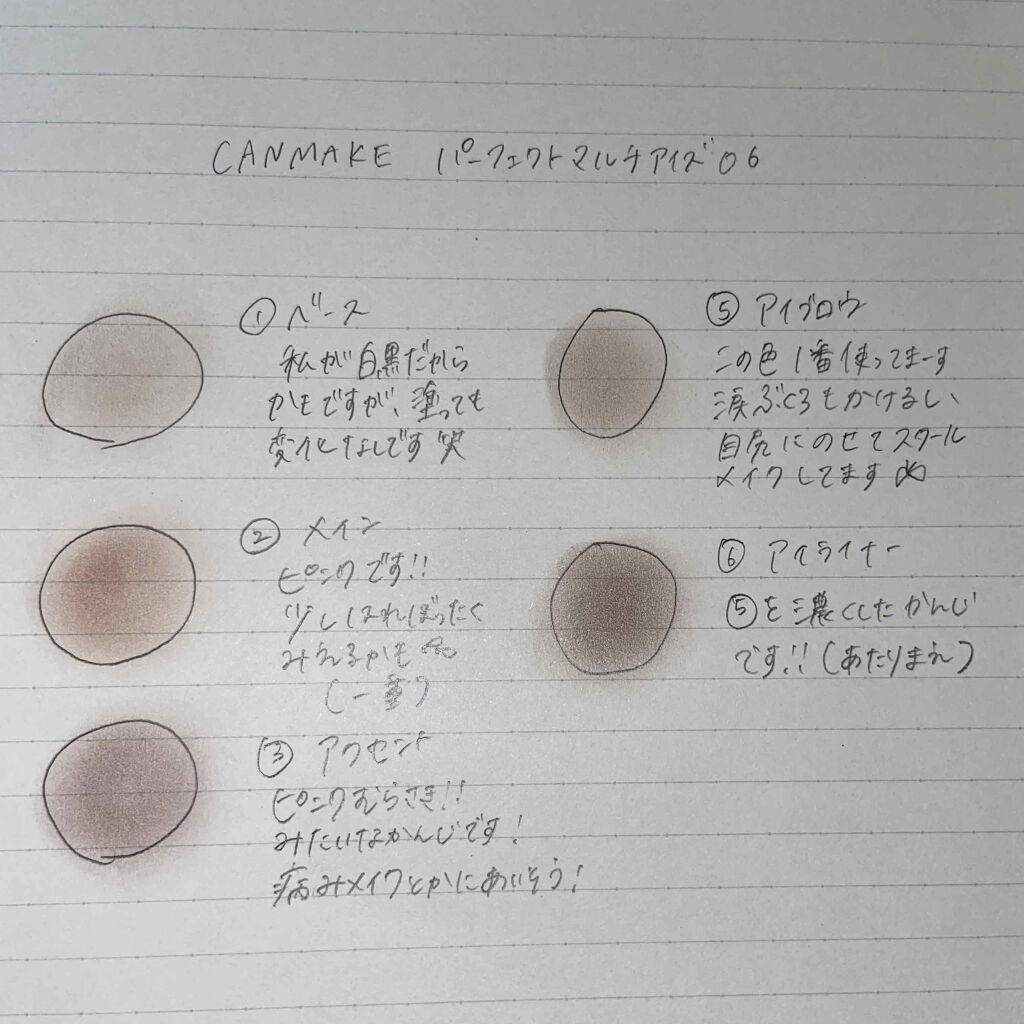 CANMAKE パーフェクトマルチアイズ06
① ベース
私が自黒だから
かもですが、塗っても
変化なしです 笑
② メイン
ピンクです!!
少しはれぼったく
みえるかも
(一重)
③ アクセント
ピンクむらさき!!
みたいなかんじです!
病みメイクとかにあいそう!
⑤ アイブロウ
この色1番使ってまーす
涙ぶくろもかけるし、
目尻にのせてスクール
メイクしてます
⑥ アイライナー
⑤を濃くしたかんじ
です!!(あたりまえ)